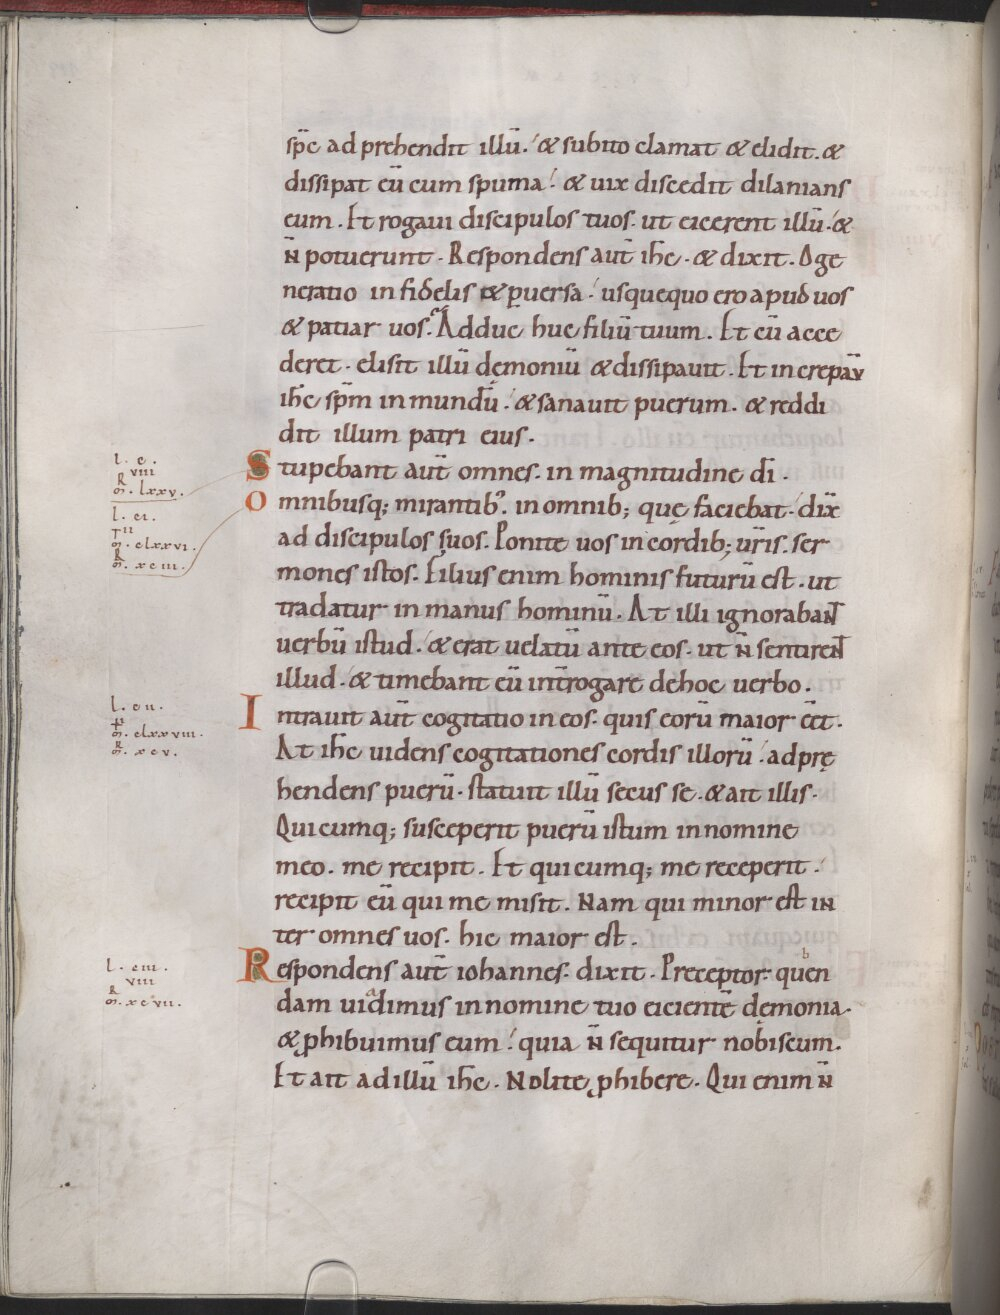 sp̅c adprehendit illū. & subito clamat & elidit. &
dissipat eū cum spuma. & uix discedit dilanians
eum. Et rogaui discipulos tuos. ut eicerent illū. &
n̅ potuerunt. Respondens aut̅ ih̅c. & dixit. O ge
neratio infidelis & ꝑuersa. usquequo ero apud uos
& patiar uos. Adduc huc filiū tuum. Et cū acce
deret. elisit illū demoniū & dissipauit. Et increpau̅
ih̅c sp̅m inmundū. & sanauit puerum. & reddi
dit illum patri eius.
l. c.
viii
R
m. lxxv.
Stupebant aut̅ omnes. in magnitudine d̅i.
l. ci.
m. clxxvi.
R
m. xciii.
Omnibusq; mirantib᾽. in omnib; quę faciebat. dix̅
ad discipulos suos. Ponite uos in cordib; ur̅is. ser
mones istos. Filius enim hominis futurū est. ut
tradatur in manus hominū. At illi ignorabant
uerbū istud. & erat uelatū ante eos. ut n̅ sentirent
illud. & timebant eū int̅rogare de hoc uerbo.
l. cii.
m. clxxviii.
R
m. xcv.
Intrauit aut̅ cogitatio in eos. quis eorū maior ee̅t.
At ih̅c uidens cogitationes cordis illorū. adprę
hendens puerū. statuit illū secus se. & ait illis.
Quicumq; susceperit puerū istum in nomine
meo. me recipit. Et quicumq; me receperit.
recipit eū qui me misit. Nam qui minor est in
ter omnes uos. hic maior est.
l. ciii.
viii
R
m. xcvii.
Respondens aut̅ iohannes. dixit. Preceptor. quen
dam uidimus in nomine tuo eicientē dęmonia.
& ꝓhibuimus eum. quia n̅ sequitur nobiscum.
Et ait ad illū ih̅c. Nolite ꝓhibere. Qui enim n̅